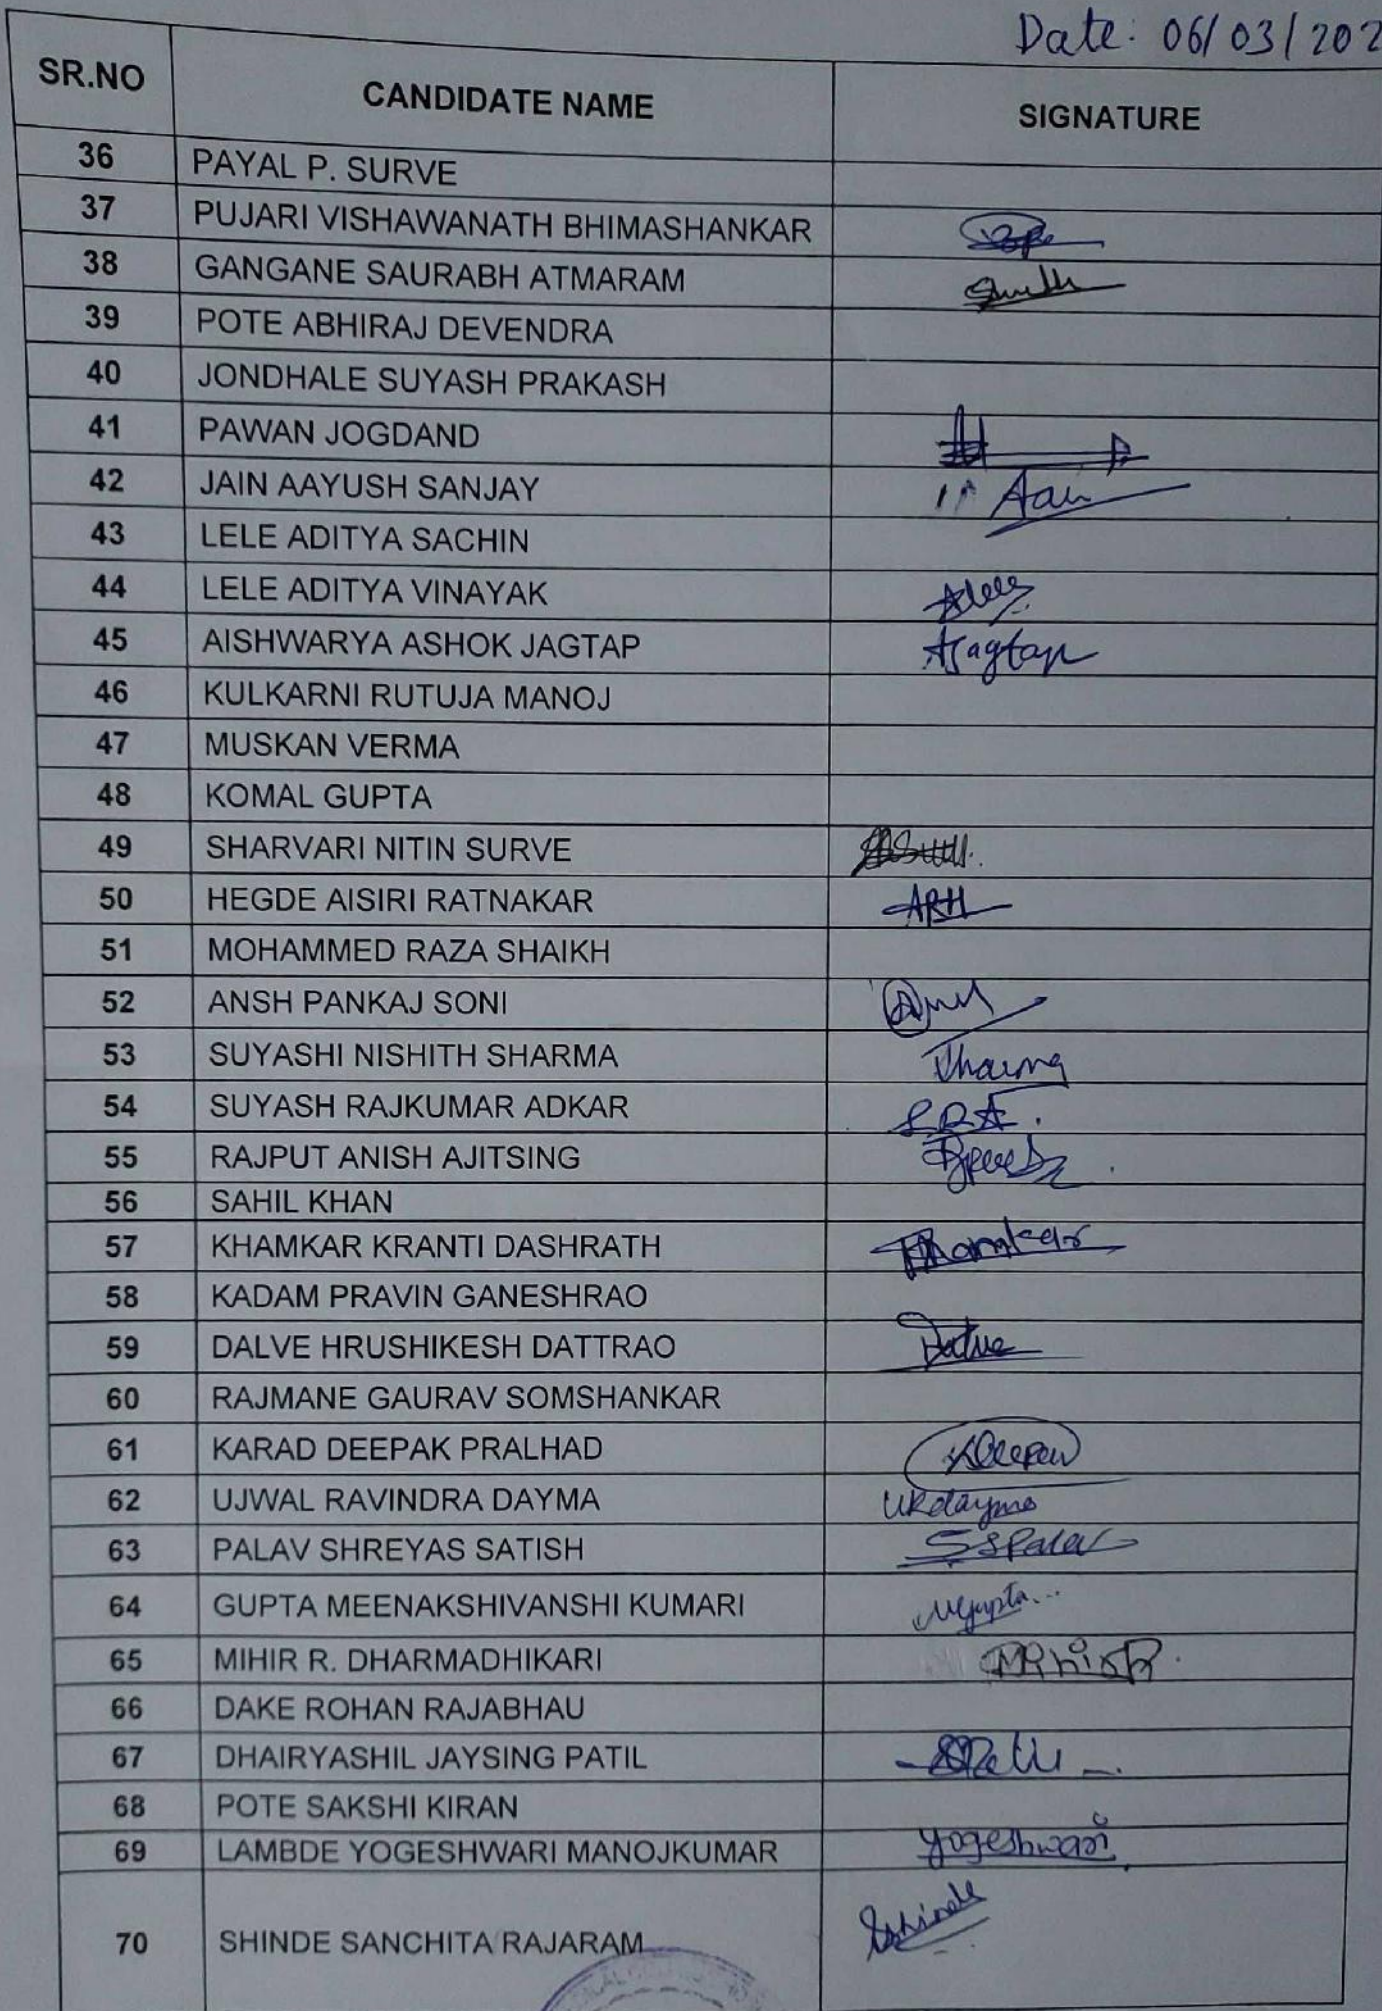 Date: 06/03/202
SR.NO CANDIDATE NAME SIGNATURE
36 PAYAL P. SURVE
37 PUJARI VISHAWANATH BHIMASHANKAR
38 GANGANE SAURABH ATMARAM
39 POTE ABHIRAJ DEVENDRA
40 JONDHALE SUYASH PRAKASH
41 PAWAN JOGDAND
42 JAIN AAYUSH SANJAY
43 LELE ADITYA SACHIN
44 LELE ADITYA VINAYAK Alele
45 AISHWARYA ASHOK JAGTAP AJagtap
46 KULKARNI RUTUJA MANOJ
47 MUSKAN VERMA
48 KOMAL GUPTA
49 SHARVARI NITIN SURVE
50 HEGDE AISIRI RATNAKAR ARH
51 MOHAMMED RAZA SHAIKH
52 ANSH PANKAJ SONI
53 SUYASHI NISHITH SHARMA
54 SUYASH RAJKUMAR ADKAR SRA.
55 RAJPUT ANISH AJITSING
56 SAHIL KHAN
57 KHAMKAR KRANTI DASHRATH
58 KADAM PRAVIN GANESHRAO
59 DALVE HRUSHIKESH DATTRAO Dalve
60 RAJMANE GAURAV SOMSHANKAR
61 KARAD DEEPAK PRALHAD
62 UJWAL RAVINDRA DAYMA URdayma
63 PALAV SHREYAS SATISH SSPalav
64 GUPTA MEENAKSHIVANSHI KUMARI MGupta...
65 MIHIR R. DHARMADHIKARI
66 DAKE ROHAN RAJABHAU
67 DHAIRYASHIL JAYSING PATIL
68 POTE SAKSHI KIRAN
69 LAMBDE YOGESHWARI MANOJKUMAR Yogeshwari
70 SHINDE SANCHITA RAJARAM SShinde